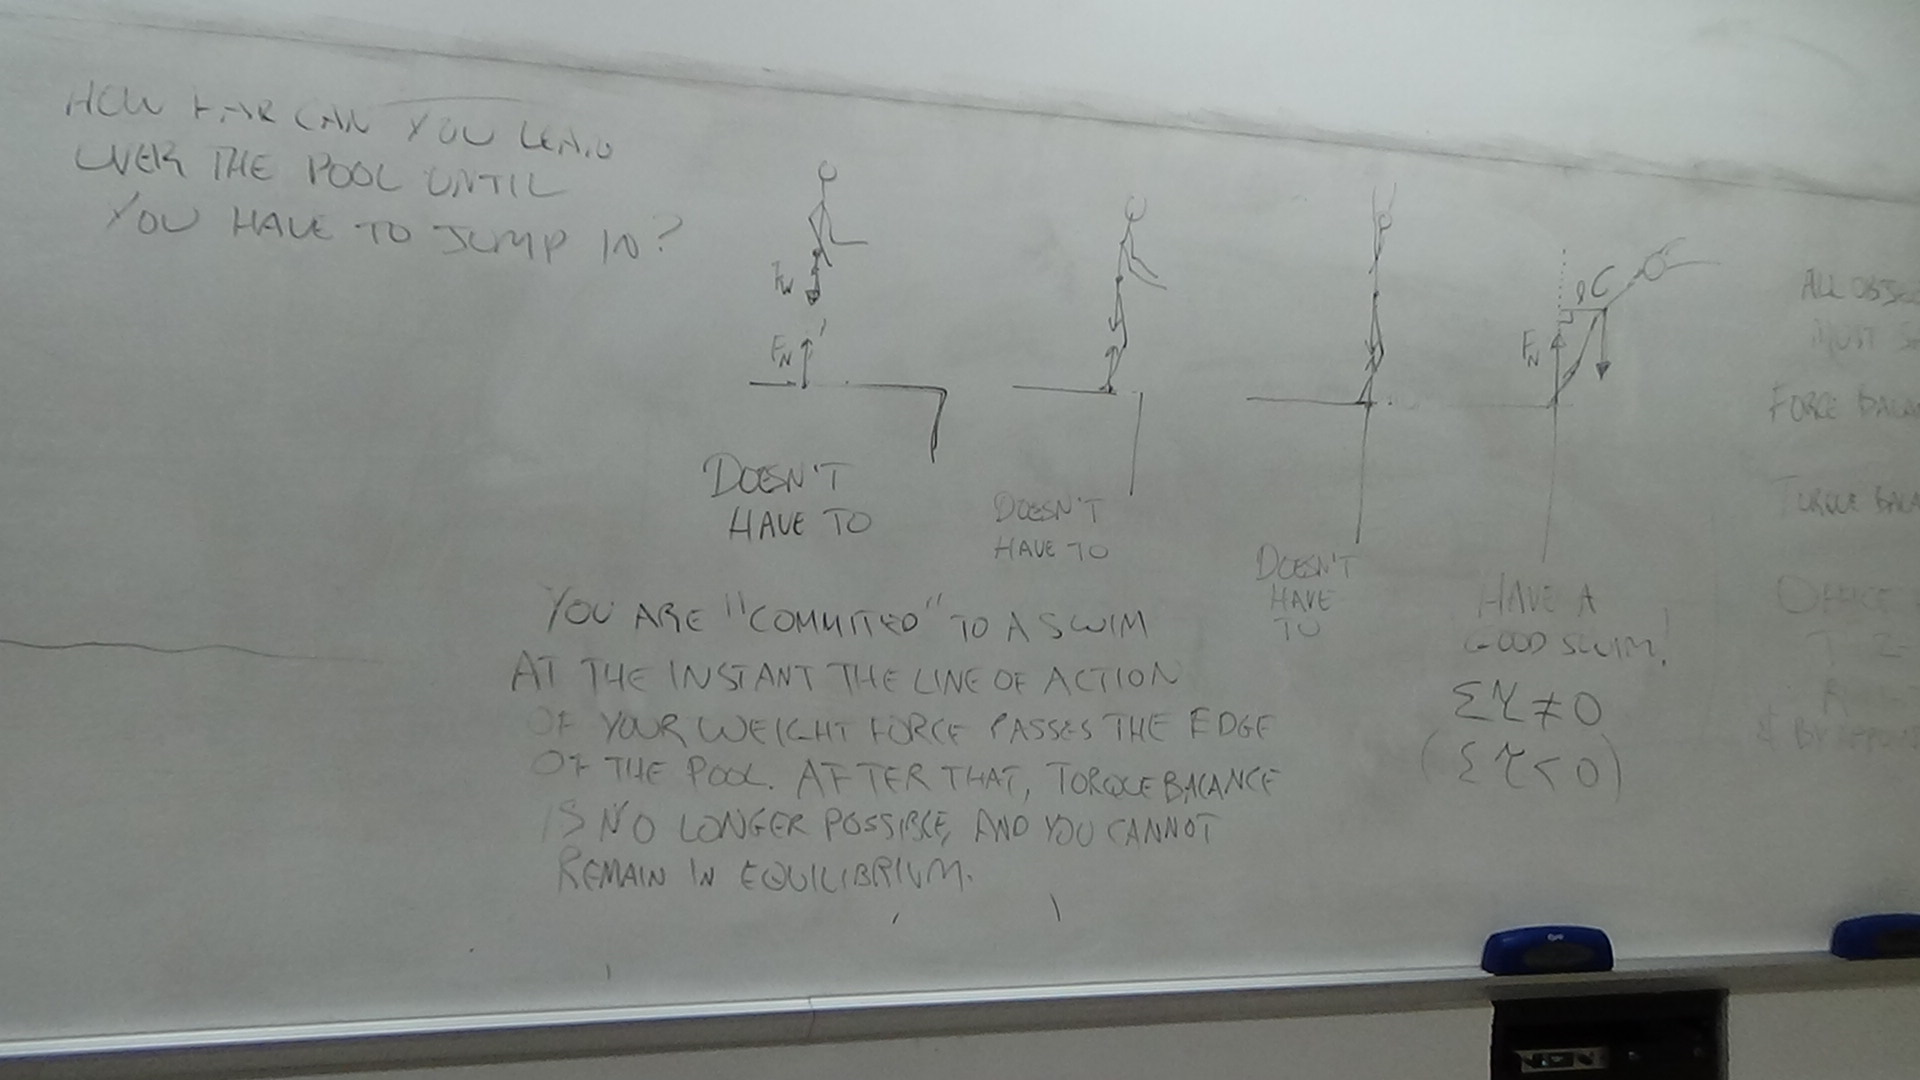 HOW FAR CAN YOU LEAN
OVER THE POOL UNTIL
YOU HAVE TO JUMP IN?
FW
FN
DOESN'T
HAVE TO
DOESN'T
HAVE TO
DOESN'T
HAVE
TO
FN
HAVE A
GOOD SWIM!
Στ≠0
(Στ<0)
YOU ARE "COMMITTED" TO A SWIM
AT THE INSTANT THE LINE OF ACTION
OF YOUR WEIGHT FORCE PASSES THE EDGE
OF THE POOL. AFTER THAT, TORQUE BALANCE
IS NO LONGER POSSIBLE, AND YOU CANNOT
REMAIN IN EQUILIBRIUM.
ALL
MUST
FORCE
TORQUE
OFFICE